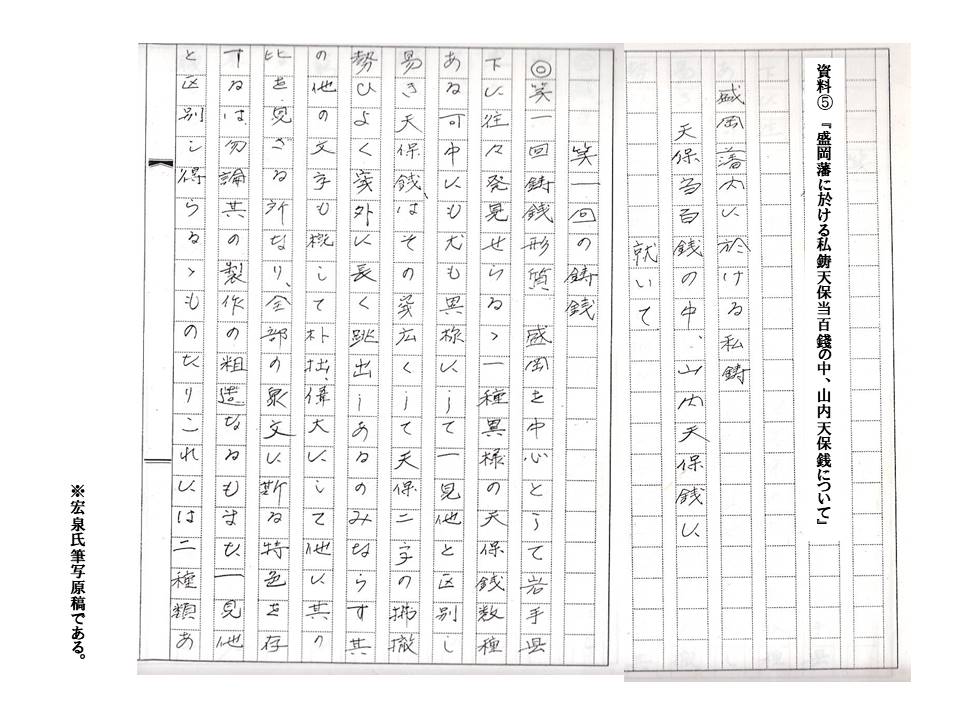 資料⑤ 『盛岡藩に於ける私鋳天保当百錢の中、山内天保銭について』
盛岡藩内に於ける私鋳
天保当百銭の中、山内天保銭に
就いて
笑一回の鋳銭
◎笑一回鋳銭形質 盛岡を中心として岩手県
下に往々発見せらるゝ一種異様の天保銭数種
ある可中にも尤も異称にして一見他と区別し
易き天保銭、はその姿広くして天保二字の拂撤
勢ひよく案外に長く跳出しあるのみならす其
の他の文字も概して朴拙、偉大にして他に其の
比を見ざる所なり、全部の泉文に斯る特色を存
するは勿論其の製作の粗造なるもまた一見他
と区別し得らるゝものたりこれには二種類あ
※宏泉氏筆写原稿である。